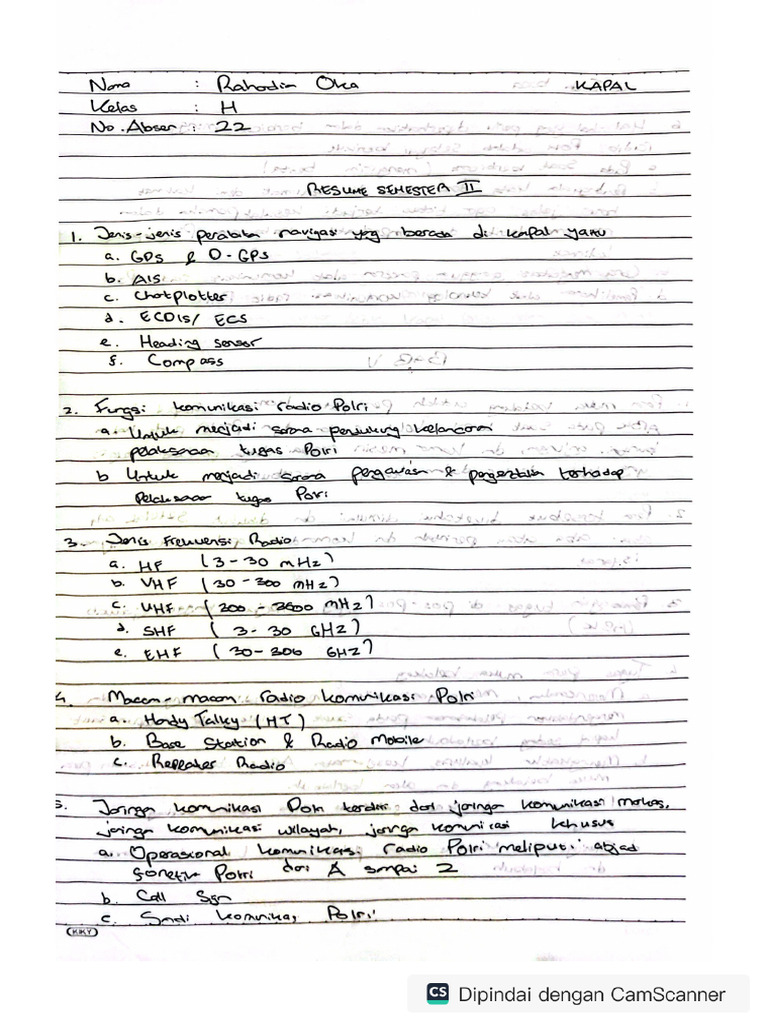 Nama : Rahadian Oka KAPAL
Kelas : H
No. Absen : 22
RESUME SEMESTER II
1. Jenis-jenis peralatan navigasi yng berada di kapal yaitu
a. GPS & D-GPS
b. AIS
c. Chatplotter
d. ECDIS/ ECS
e. Heading sensor
f. Compass
2. Fungsi komunikasi radio Polri
a. Untuk menjadi sarana pendukung kelancaran
pelaksanaan tugas Polri
b Untuk menjadi sarana pengawasan & pengendalian terhadap
pelaksanaan tugas Polri
3. Jenis Frekuensi Radio
a. HF (3-30 mHz)
b. VHF (30-300 mHz)
c. UHF (300-3000 mHz)
d. SHF (3-30 GHz)
e. EHF (30-300 GHz)
4. Macam-macam radio komunikasi Polri
a. Handy Talky (HT)
b. Base Station & Radio Mobile
c. Repeater Radio
5. Jaringan komunikasi Polri terdiri dari jaringan komunikasi mabes,
jaringan komunikasi wilayah, jaringan komunikasi khusus
a. Operasional komunikasi radio Polri meliputi abjad
fonetik Polri dari A sampai Z
b. Call Sign
c. Sandi komunikasi Polri
KIKY
CS Dipindai dengan CamScanner